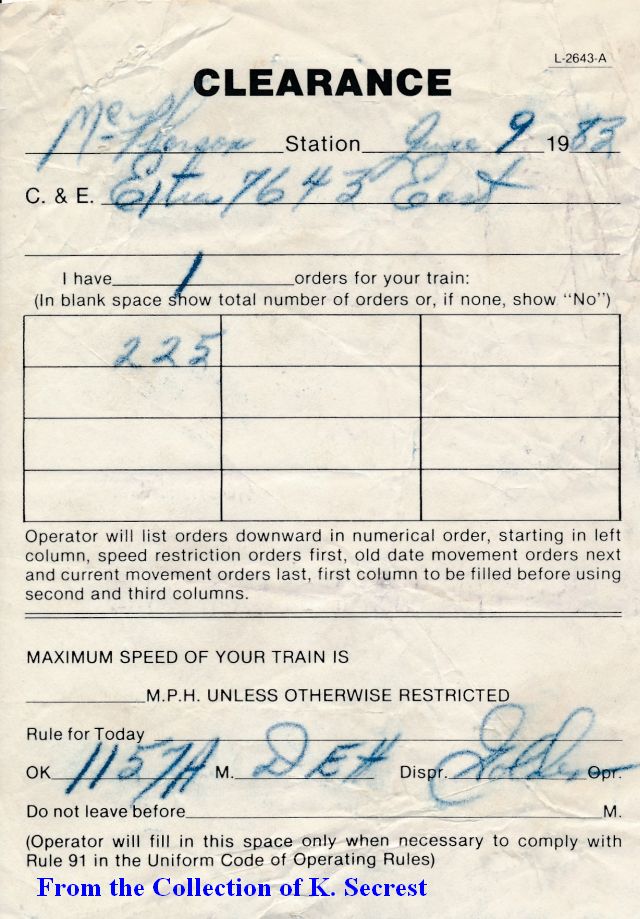 L-2643-A
CLEARANCE
McPherson Station June 9 1983
C. & E. Extra 7643 East
I have 1 orders for your train:
(In blank space show total number of orders or, if none, show "No")
225
Operator will list orders downward in numerical order, starting in left
column, speed restriction orders first, old date movement orders next
and current movement orders last, first column to be filled before using
second and third columns.
MAXIMUM SPEED OF YOUR TRAIN IS
M.P.H. UNLESS OTHERWISE RESTRICTED
Rule for Today
OK 1157A M. DEH Dispr. Opr.
Do not leave before M.
(Operator will fill in this space only when necessary to comply with
Rule 91 in the Uniform Code of Operating Rules)
From the Collection of K. Secrest